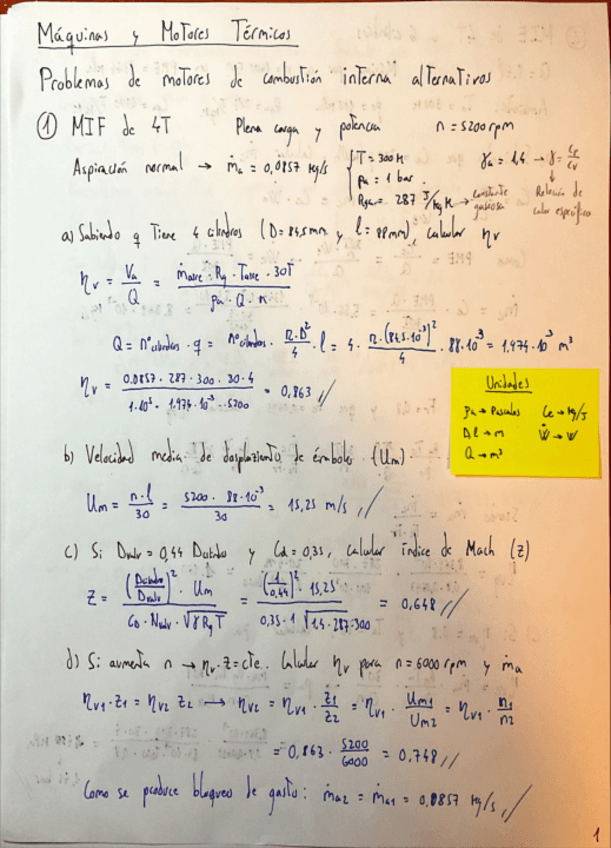 Máquinas y Motores Térmicos
Problemas de motores de combustión interna alternativos
① MIF de 4T Plena carga y potencia n = 5200 rpm
Aspiración normal → ṁa = 0,0857 kg/s { T = 300 K γa = 1,4 → γ = Cp/Cv
pa = 1 bar
Rga = 287 J/kg K → constante gaseosa Relación de calor específico
a) Sabiendo q tiene 4 cilindros (D = 84,5 mm y l = 88 mm), calcular ηv
ηv = Va/Q = (ṁaire · Rg · Taire · 30T)/(pa · Q · n)
Q = nº cilindros · q = nº cilindros · (π·D²/4) · l = 4 · (π·(84,5·10⁻³)²/4) · 88·10⁻³ = 1,974·10⁻³ m³
ηv = (0.0857 · 287 · 300 · 30 · 4)/(1·10⁵ · 1,974·10⁻³ · 5200) = 0,863 //
Unidades
pa → Pascales Ce → kg/J
D,l → m Ẇ → W
Q → m³
b) Velocidad media de desplaziento de émbolos (Um)
Um = n·l/30 = (5200 · 88·10⁻³)/30 = 15,25 m/s //
c) Si Dvalv = 0,44 Dcilindro y Cd = 0,35, calcular índice de Mach (Z)
Z = ((Dcilindro/Dvalv)² · Um)/(CD · Nvalv · √(γ Rg T)) = ((1/0,44)² · 15,25)/(0,35 · 1 √(1,4 · 287 · 300)) = 0,648 //
d) Si aumenta n → ηv · Z = cte. Calcular ηv para n = 6000 rpm y ṁa
ηv1 · Z1 = ηv2 Z2 → ηv2 = ηv1 · Z1/Z2 = ηv1 · Um1/Um2 = ηv1 · n1/n2
= 0,863 · 5200/6000 = 0,748 //
Como se produce bloqueo de gasto: ṁa2 = ṁa1 = 0,0857 kg/s //
1